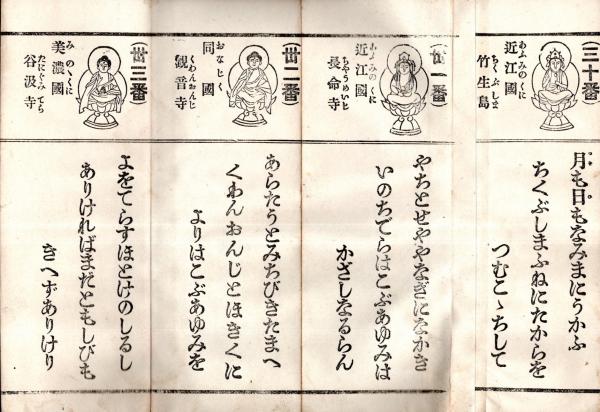 (三十番)
近江國
あふみのくに
竹生島
ちくぶしま
月も日もなみまにうかふ
ちくぶしまふねにたからを
つむこゝちして
(丗一番)
近江國
あふみのくに
長命寺
ちやうめいじ
やちとせややなぎにながき
いのちでらはこぶあゆみは
かざしなるらん
(丗二番)
同國
おなじく
觀音寺
くわんおんじ
あらたうとみちびきたまへ
くわんおんじとほきくに
よりはこぶあゆみを
(丗三番)
美濃國
みのゝくに
谷汲寺
たにぐみでら
よをてらすほとけのしるし
ありければまだともしびも
きへずありけり